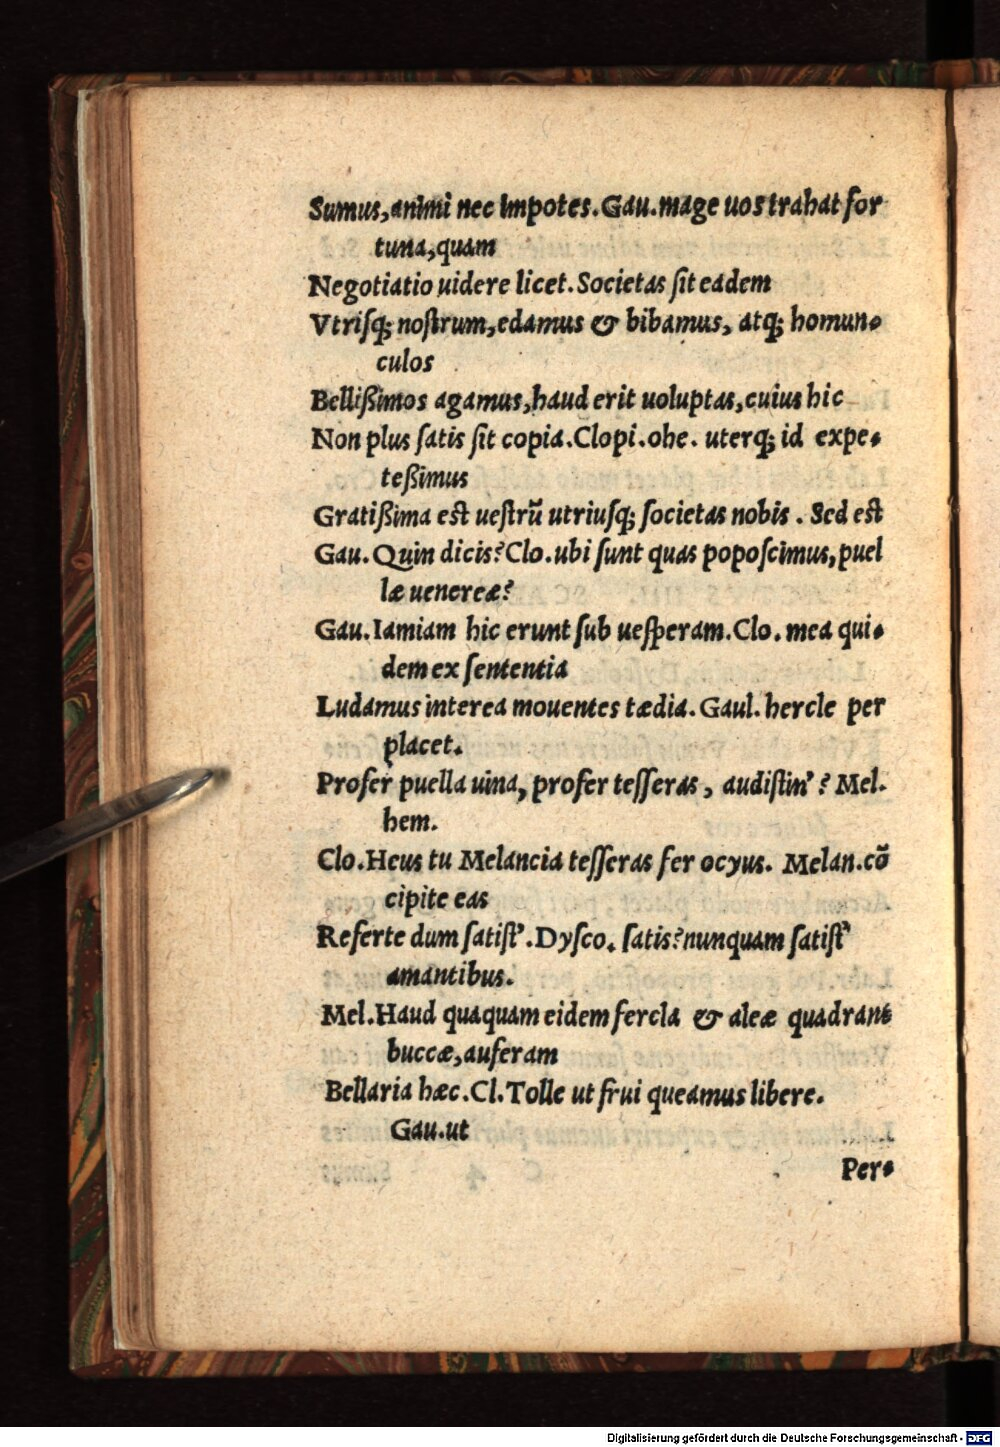 Sumus,animi nec impotes.Gau.mage uos trahat for
tuna,quam
Negotiatio uidere licet.Societas ſit eadem
Vtriſq; noſtrum,edamus & bibamus, atq; homun-
culos
Bellißimos agamus,haud erit uoluptas,cuius hic
Non plus ſatis ſit copia.Clopi.ohe. uterq; id expe-
teßimus
Gratißima eſt ueſtrũ utriuſq; ſocietas nobis . Sed eſt
Gau.Quin dicis?Clo.ubi ſunt quas popoſcimus,puel
læ uenereæ?
Gau.Iamiam hic erunt ſub ueſperam.Clo.mea qui-
dem ex ſententia
Ludamus interea mouentes tædia.Gaul.hercle per
placet.
Profer puella uina, profer teſſeras, audiſtin'? Mel.
hem.
Clo.Heus tu Melancia teſſeras fer ocyus. Melan.cõ
cipite eas
Referte dum ſatiſt'.Dyſco. ſatis?nunquam ſatiſt'
amantibus.
Mel.Haud quaquam eidem fercla & aleæ quadrant
buccæ,auferam
Bellaria hæc.Cl.Tolle ut frui queamus libere.
Gau.ut
Per-
Digitalisierung gefördert durch die Deutsche Forschungsgemeinschaft - DFG